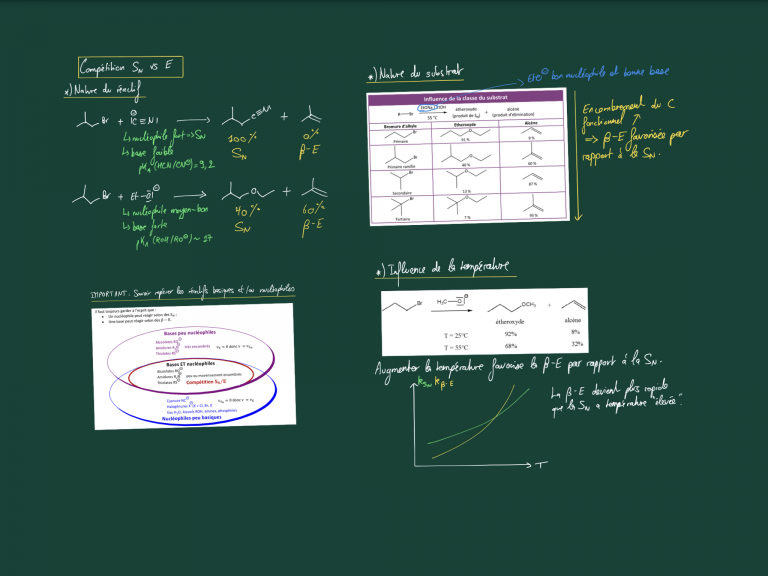 Compétition SN vs E
*) Nature du réactif
Br + |C≡N| → C≡N| +
↳ nucléophile fort => SN
↳ base faible
pKA (HCN/CN⊖) = 9,2
100% 0%
SN β-E
Br + Et-O|⊖ → O +
↳ nucléophile moyen-bon
↳ base forte
pKA (ROH/RO⊖) ~ 17
40% 60%
SN β-E
IMPORTANT : Savoir repérer les réactifs basiques et/ou nucléophiles
Il faut toujours garder à l'esprit que :
• Un nucléophile peut réagir selon des SN ;
• Une base peut réagir selon des β – E.
Bases peu nucléophiles
Alcoolates RO⊖
Amidures R2N⊖ très encombrés
Thiolates RS⊖
Bases ET nucléophiles
Alcoolates RO⊖
Amidures R2N⊖ peu ou moyennement encombrés
Thiolates RS⊖ Compétition SN/E
Cyanure NC⊖
Nucléophiles peu basiques
*) Nature du substrat
EtO⊖ bon nucléophile et bonne base
Influence de la classe du substrat
55 °C
étheroxyde alcène
(produit de SN) (produit d'élimination)
Bromure d'alkyle Étheroxyde Alcène
Primaire 91 % 9 %
Primaire ramifié 40 % 60 %
Secondaire 13 % 87 %
Tertiaire 7 % 93 %
Encombrement du C
fonctionnel ↗
=> β-E favorisée par
rapport à la SN.
*) Influence de la température
Br H3C—O|⊖ → OCH3 +
étheroxyde alcène
T = 25°C 92% 8%
T = 55°C 68% 32%
Augmenter la température favorise la β-E par rapport à la SN.
kSN kβ-E
La β-E devient plus rapide
que la SN a température "élevée".
T